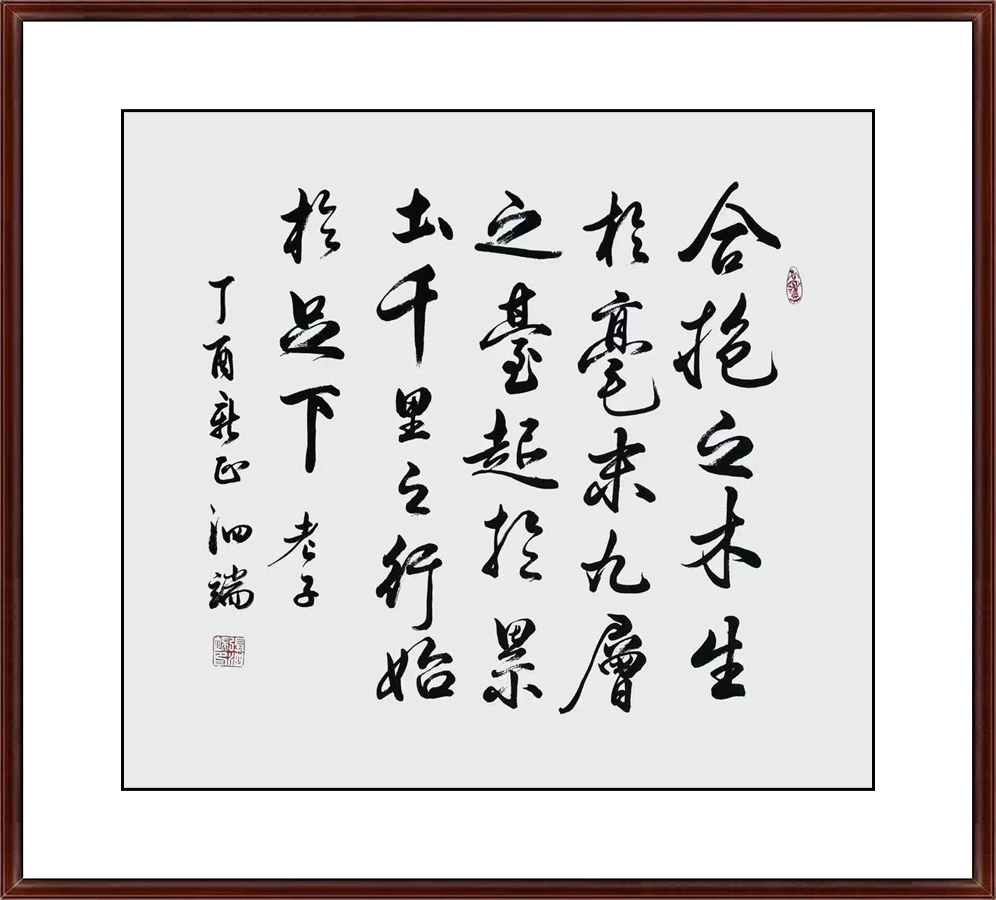 合抱之木生
於毫末九層
之臺起於累
土千里之行始
於足下 老子
丁酉新正 泗端